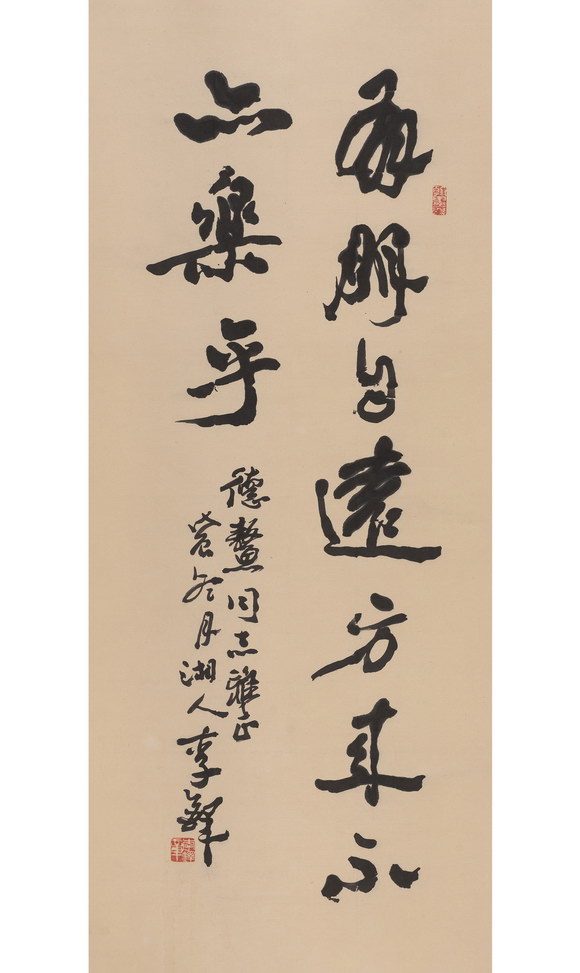 有朋自遠方来不
亦樂乎
德鰲同志雅正
冬月湖人李鐸